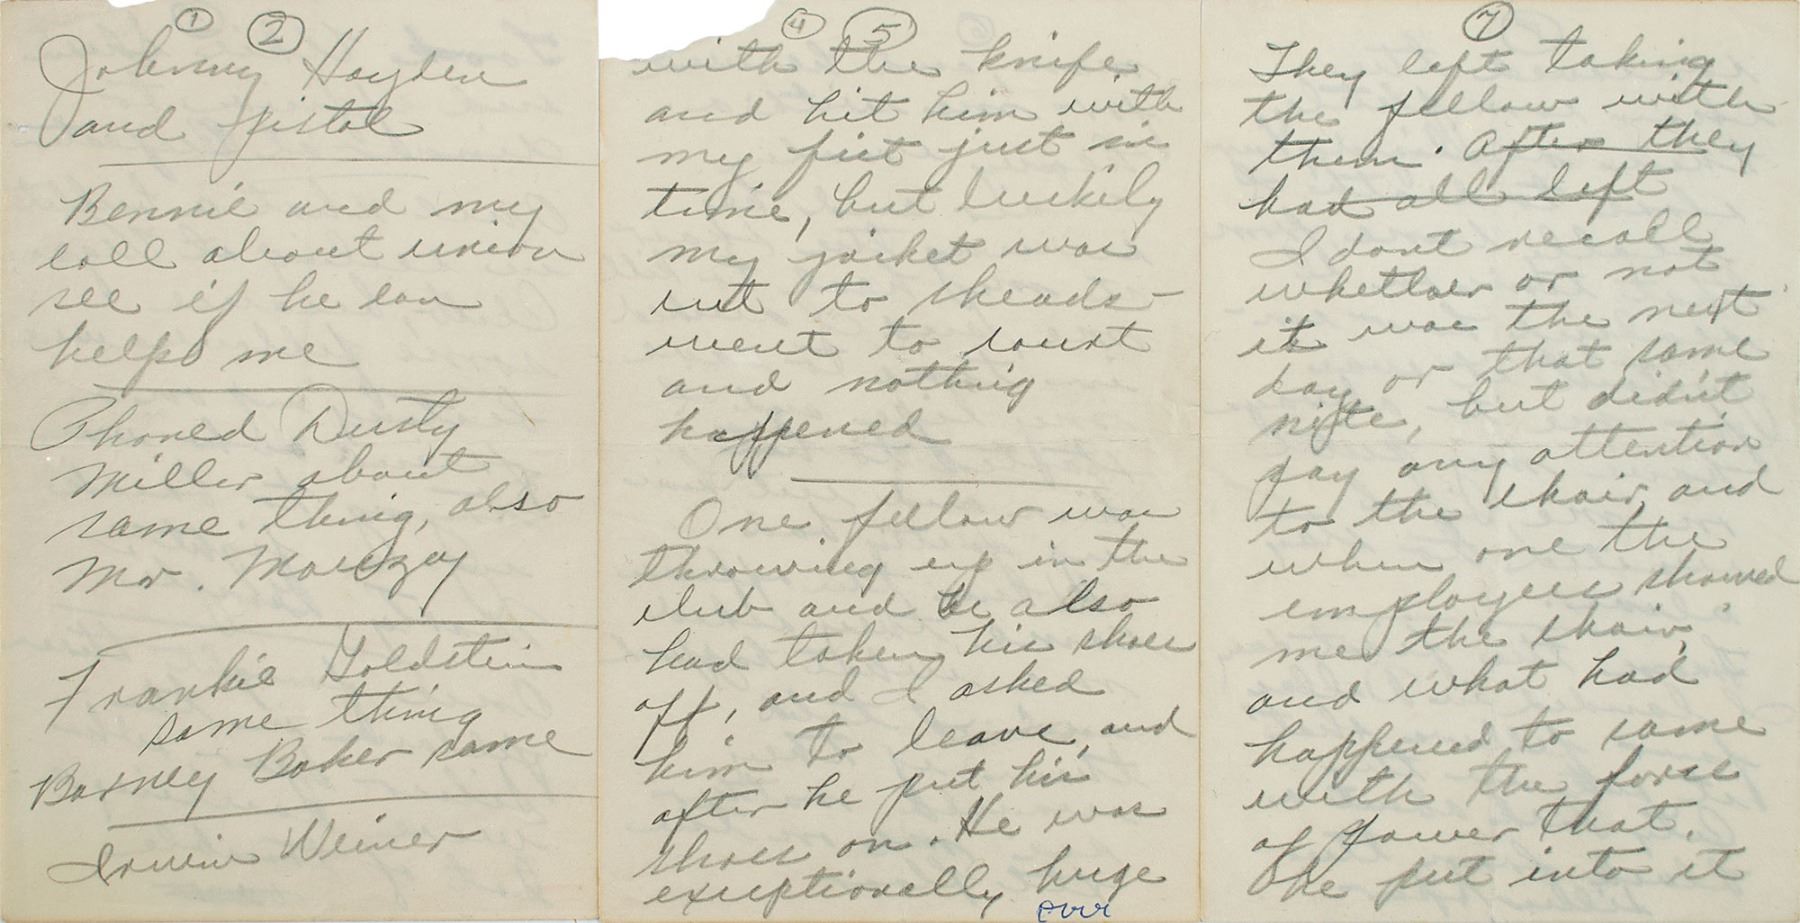 ① ②
Johnny Hayden
and pistol
Bennie and my
call about union
see if he can
help me
Phoned Dusty
Miller about
same thing, also
Mr.
Frankie Goldstein
same thing
Barney Baker same
Irwin Weiner
④ ⑤
with the knife
and hit him with
my fist just in
time, but luckily
my jacket was
cut to shreads -
went to court
and nothing
happened
One fellow was
throwing up in the
club and he also
had taken his shoes
off, and I asked
him to leave, and
after he put his
shoes on. He was
exceptionally huge
over
⑦
They left taking
the fellow with
them. After they
had all left
I dont recall
whether or not
it was the next
day or that same
nite, but didn't
pay any attention
to the chair, and
when one the
employees showed
me the chair,
and what had
happened to same
with the force
of power that.
he put into it